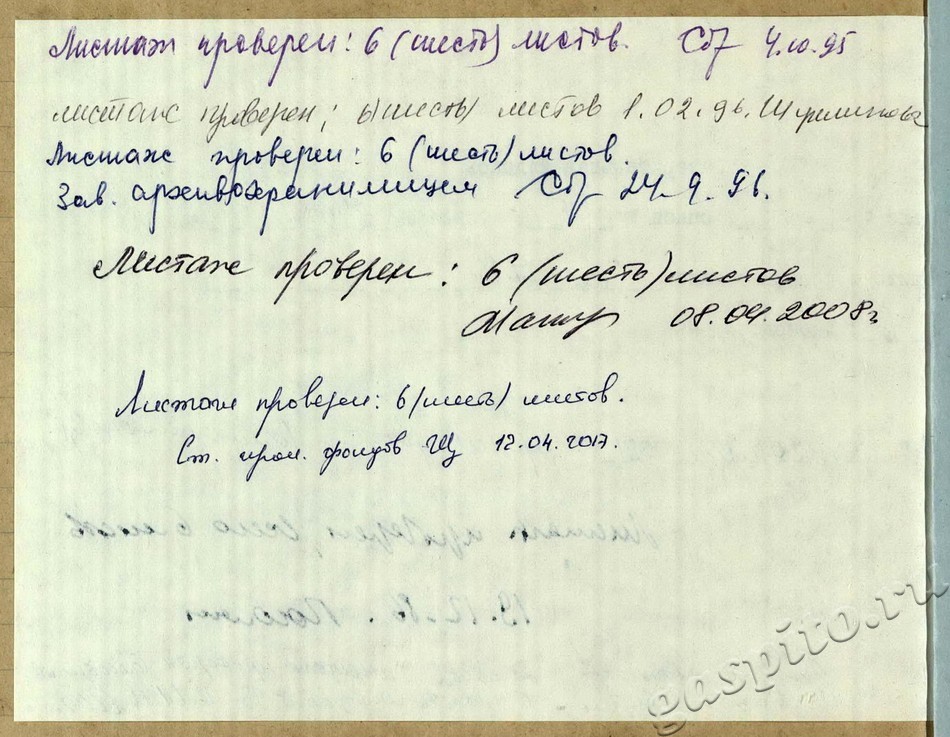 Листаж проверен: 6 (шесть) листов. 4.10.95
листаж проверен; 6 (шесть) листов 1.02.96.
Листаж проверен: 6 (шесть) листов.
Зав. архивохранилищем 24.9.96.
Листаж проверен: 6 (шесть) листов
08.04.2008г.
Листаж проверен: 6 (шесть) листов.
Ст. хран. фондов 12.04.2017.
gaspito.ru